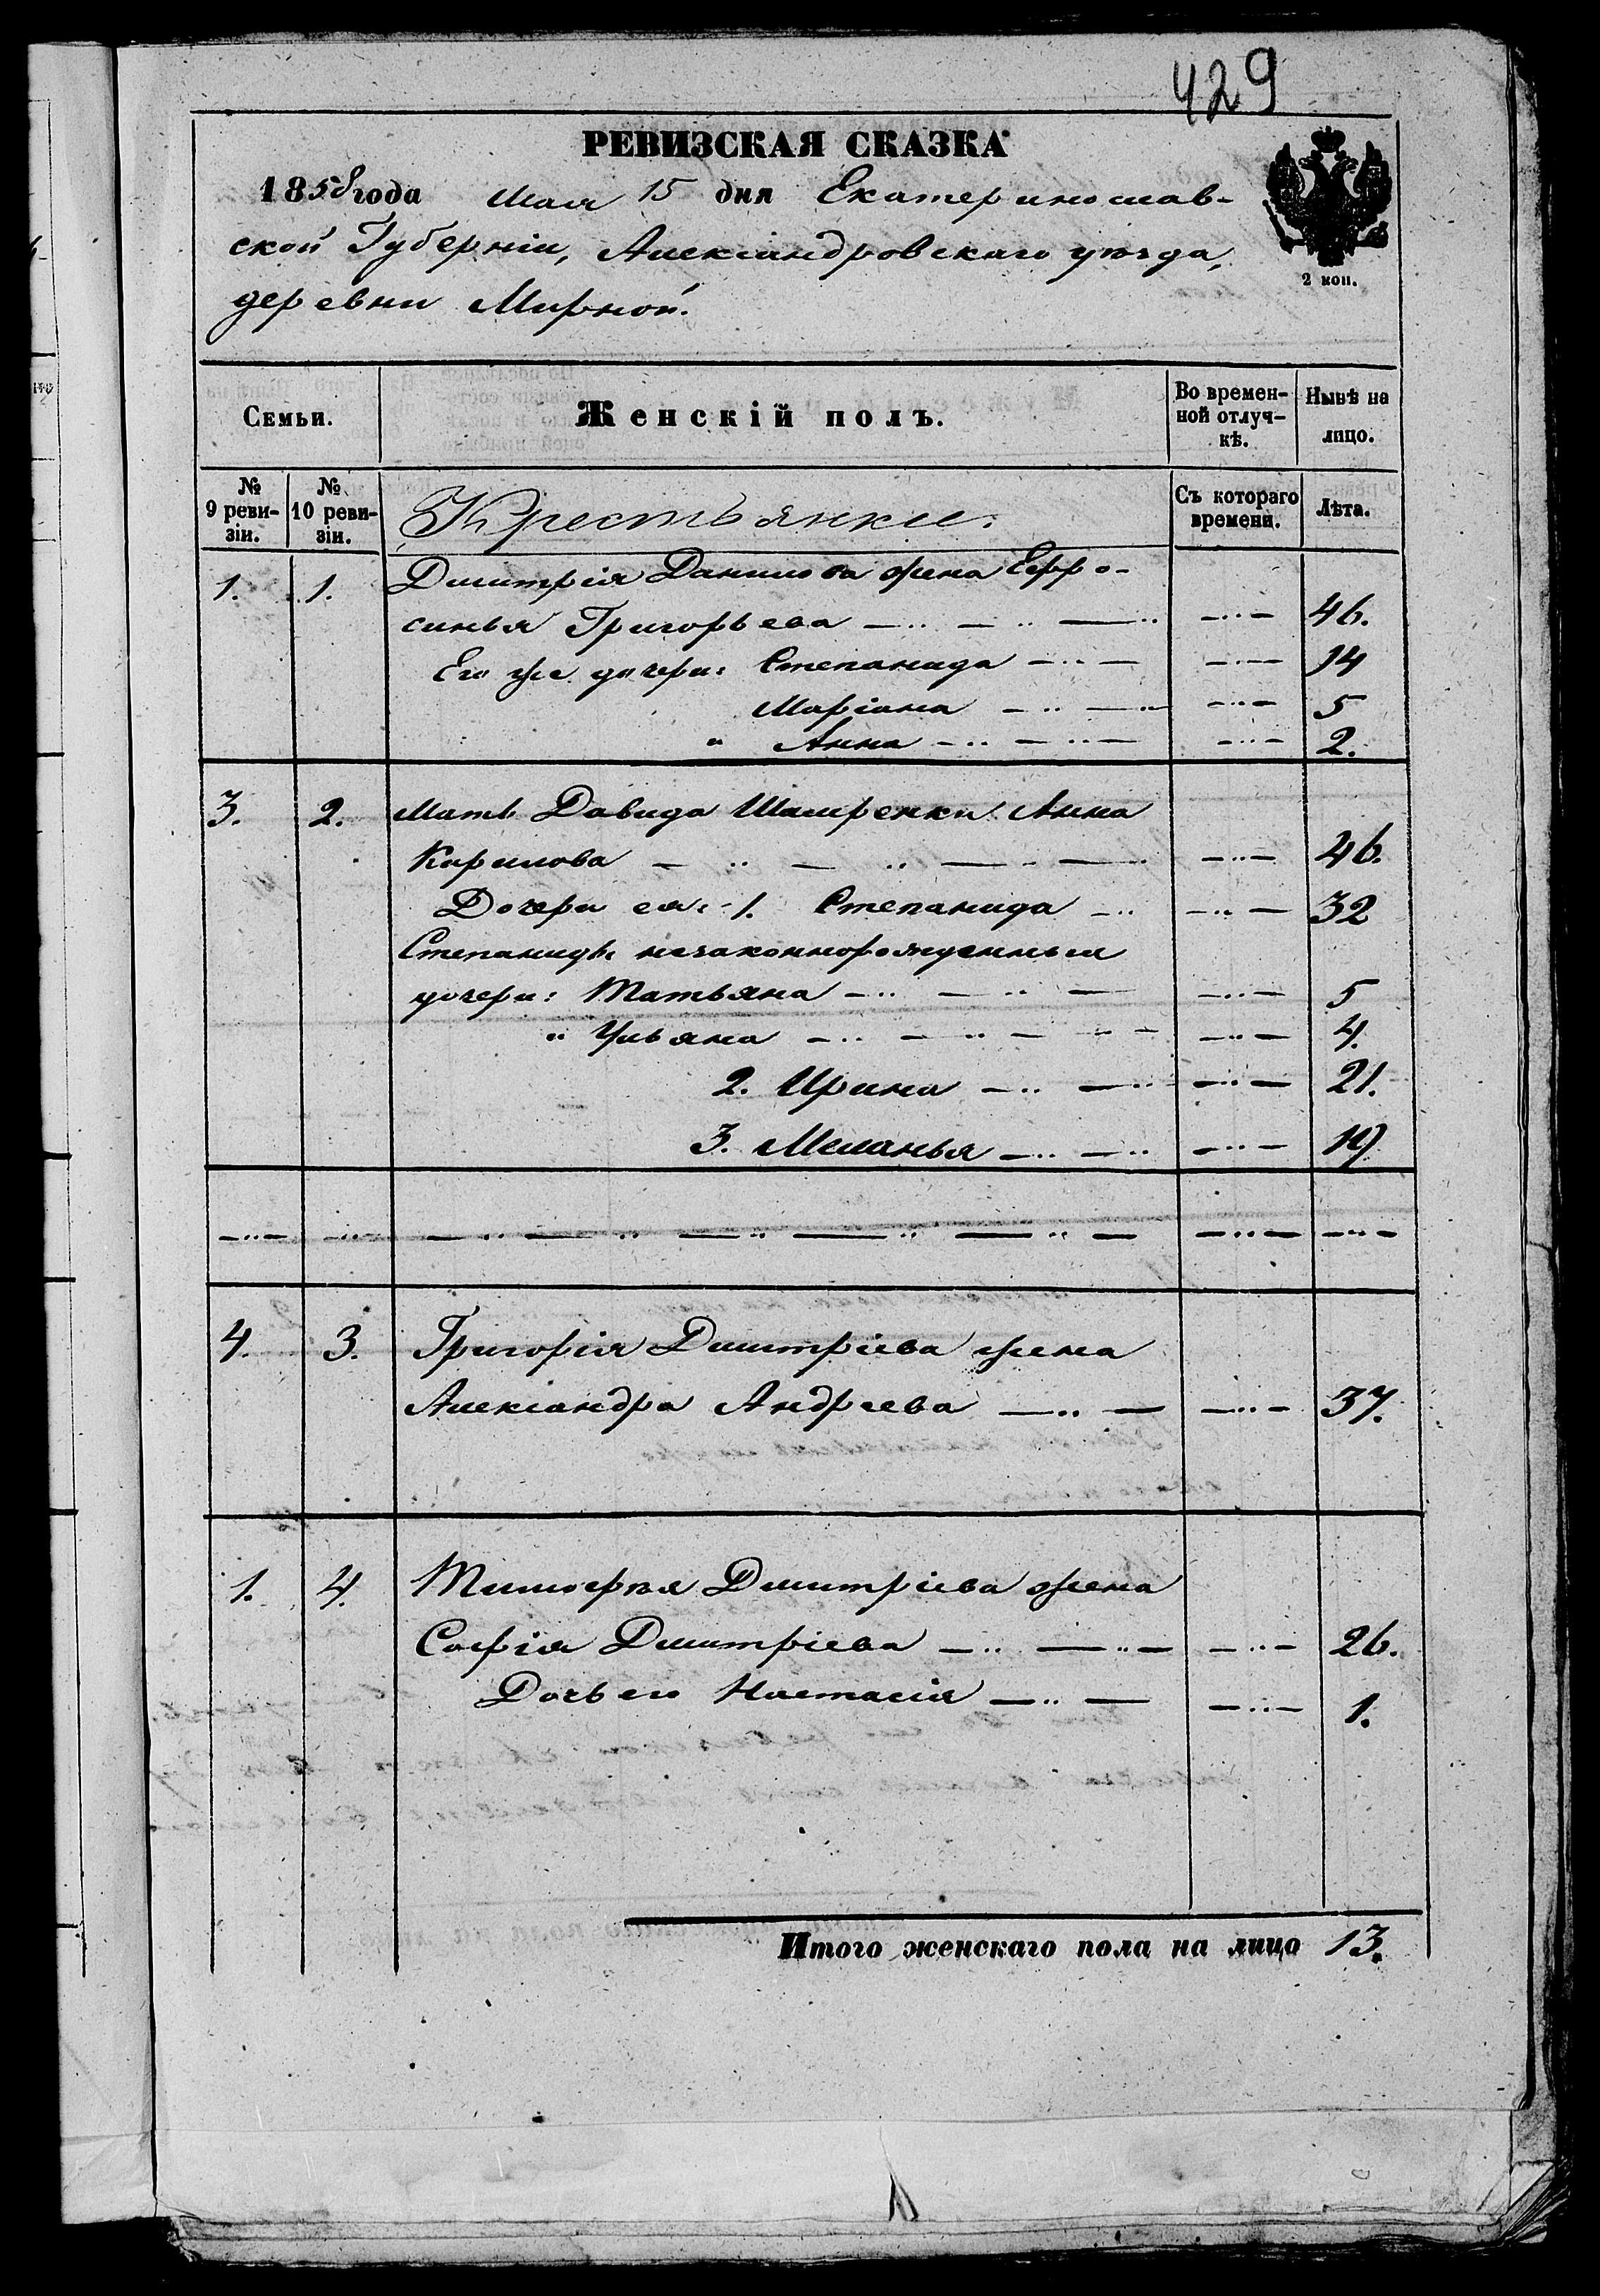 429
РЕВИЗСКАЯ СКАЗКА
1858 года Мая 15 дня Екатеринослав-
ской Губерніи, Александровскаго уѣзда,
деревни Мирной.
2 коп.
Семьи. Женскій полъ. Во времен-ной отлуч-кѣ. Нынѣ на лицо.
№ 9 реви-зіи. № 10 реви-зіи. Крестьянки. Съ котораго времени. Лѣта.
1. 1. Дмитрія Данилова жена Ефро-
синья Григорьева — .. — .. — .. — .. — 46.
Его же дочери: Степанида — .. — — .. — 14
Маріана — .. — .. — .. — 5
" Анна — .. — .. — — .. — 2.
3. 2. Мать Давида Шамренки Анна
Карилова — .. — .. — .. — — .. — 46.
Дочери ея: 1. Степанида — .. — .. — 32
Степаниды незаконнорожденныя
дочери: Татьяна — .. — .. — — .. — 5
" Ульяна — .. — .. — .. — — .. — 4.
2. Ирина — .. — .. — .. — 21.
3. Меланья — .. — .. — .. — 19
— .. — — .. — — .. — .. — .. — .. — .. — — .. — — .. —
4. 3. Григорія Дмитріева жена
Александра Андреева — .. — — .. — 37.
1. 4. Тимофея Дмитріева жена
Софія Дмитріева — .. — .. — — .. — 26.
Дочь его Настасія — .. — — .. — 1.
Итого женскаго пола на лицо 13.